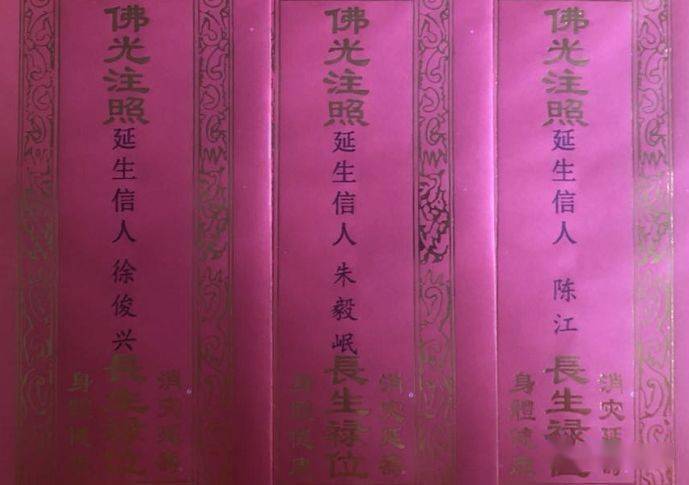 佛光注照
延生信人 徐俊兴
長生禄位
消灾延壽
身體健康
佛光注照
延生信人 朱毅岷
長生禄位
消灾延壽
身體健康
佛光注照
延生信人 陈江
長生禄位
消灾延壽
身體健康